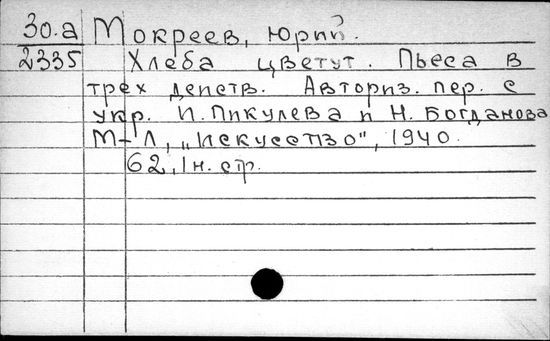 30.а Мокреев, Юрий.
2335 Хлеба цветут. Пьеса в
трех действ. Авториз. пер. с
укр. И. Пикулева и Н. Богданова
М-Л, „Искусство", 1940.
62, 1н. стр.